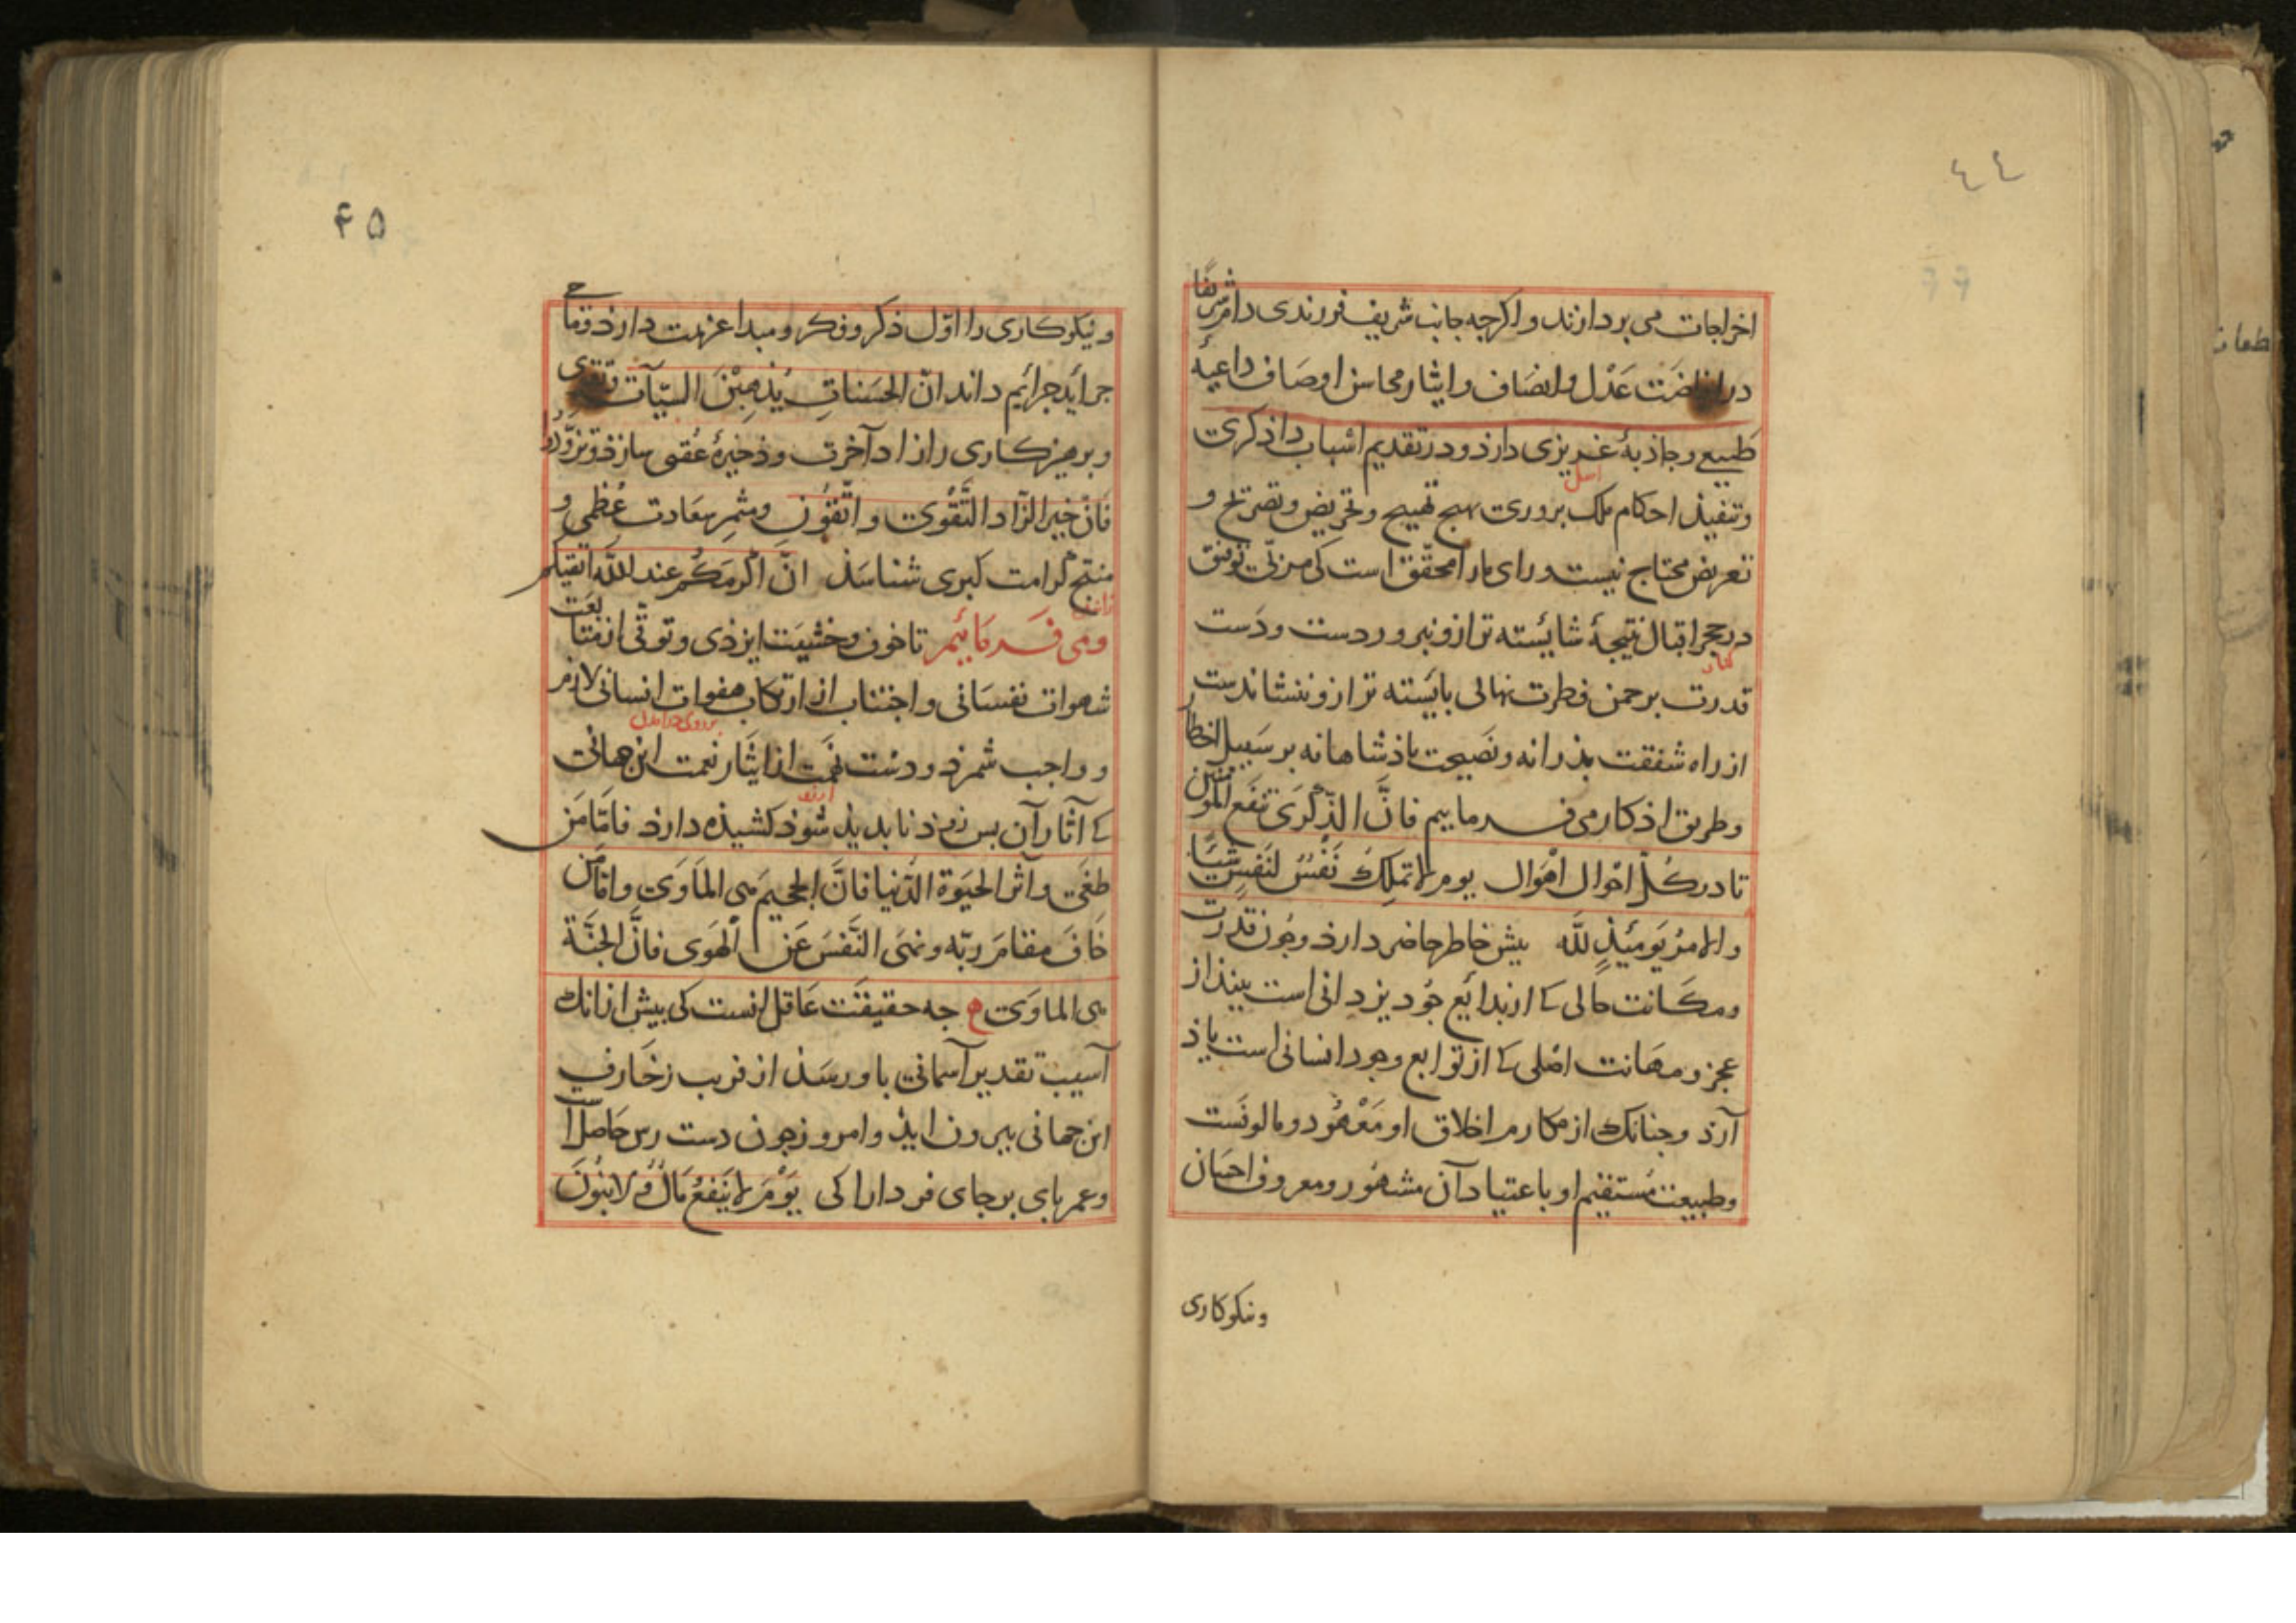 ٤٤
اخراجات می بردازند واکرجه جانب شریف فرزندی دام شریفا
در افاضت عَدْل وانصَاف وایثار محاسن اوصَاف داعیهٔ
طبیعی وجاذبهٔ غریزی دارذ ودر تقدیم اسباب داذ کری
وتنفیذ احکام ملک بروری بهیج تهییج وتحریض وتصریح و
تعریض محتاج نیست ورای مارا محقّق است کی مربّی توفیق
در حجر اقبال نتیجهٔ شایسته تر ازو نبروردست ودَست
قدرت بر جمن فطرت نهالی بایسته تر ازو ننشاندست
از راه شفقت بذرانه ونصَیحت باذشاهانه بر سَبیل اخطار
وطریق اذکار می فرماییم فانَّ الذّکرَی تنفَع المؤمنین
تا در کلّ احْوال اهْوَال یومَ لا تملِکُ نَفْسٌ لنَفسٍ شیئًا
والامرُ یَومَئِذٍ للّه بیش خاطر حاضر دارذ وجُون قدرت
ومکَانت حالی کی از بدائع جُود یزدانی است بیند از
عجز ومهَانت اصْلی کی از توابع وجود انسانی است یاذ
آرذ وجنانک از مکارم اخلاق او مَعْهُود ومالوفست
وطبیعت مُستقیم او باعتیاد آن مشهُور ومعروف احسَان
ونیکوکاری
۴۵
ونیکوکاری را اوّل ذکر وفکر ومبدا عزیمت دارذ وماحی
جراید جرائیم داند انّ الحَسَناتِ یُذهِبْنَ السیّآت وتقوی
وبرهیزکاری را زاد آخرت وذخیرهٔ عُقبی سازذ وتزوّدُوا
فَانّ خَیر الزّاد التَّقْوَی واتّقُونِ ومثمر سعَادت عُظمی و
منتج کرامت کبری شناسَذ انّ اکْرمَکُم عند اللّه اتقیکم
ومی فرمَائیم تا خوف وخشیَت ایزذی وتوقّی از متابعت
شهوات نفسَانی واجتناب از ارتکاب هفوات انسانی لازم
وواجب شمرذ ودست نهمت از ایثار نعمت این جهانی
کی آثار آن بس زوذ نابدیذ شوذ کشیذه دارذ فامّا مَن
طغَی وآثر الحیَوة الدّنیا فانَّ الجحیمَ هی المَاوَی وامّا من
خَافَ مقامَ ربّه ونهَی النَّفسَ عَن الهَوَی فانَّ الجَنَّة
هی الماوَی جه حقیقَت عَاقل انست کی بیش از انک
آسیب تقدیر آسمانی باو رسَذ از فریب زخَارفِ
این جهانی بیرون ایذ وامروز جون دست رس حَاصل است
وعمر بای بر جای فردا را کی یَوْمَ لا یَنفَعُ مَالٌ وَلا بنُونَ